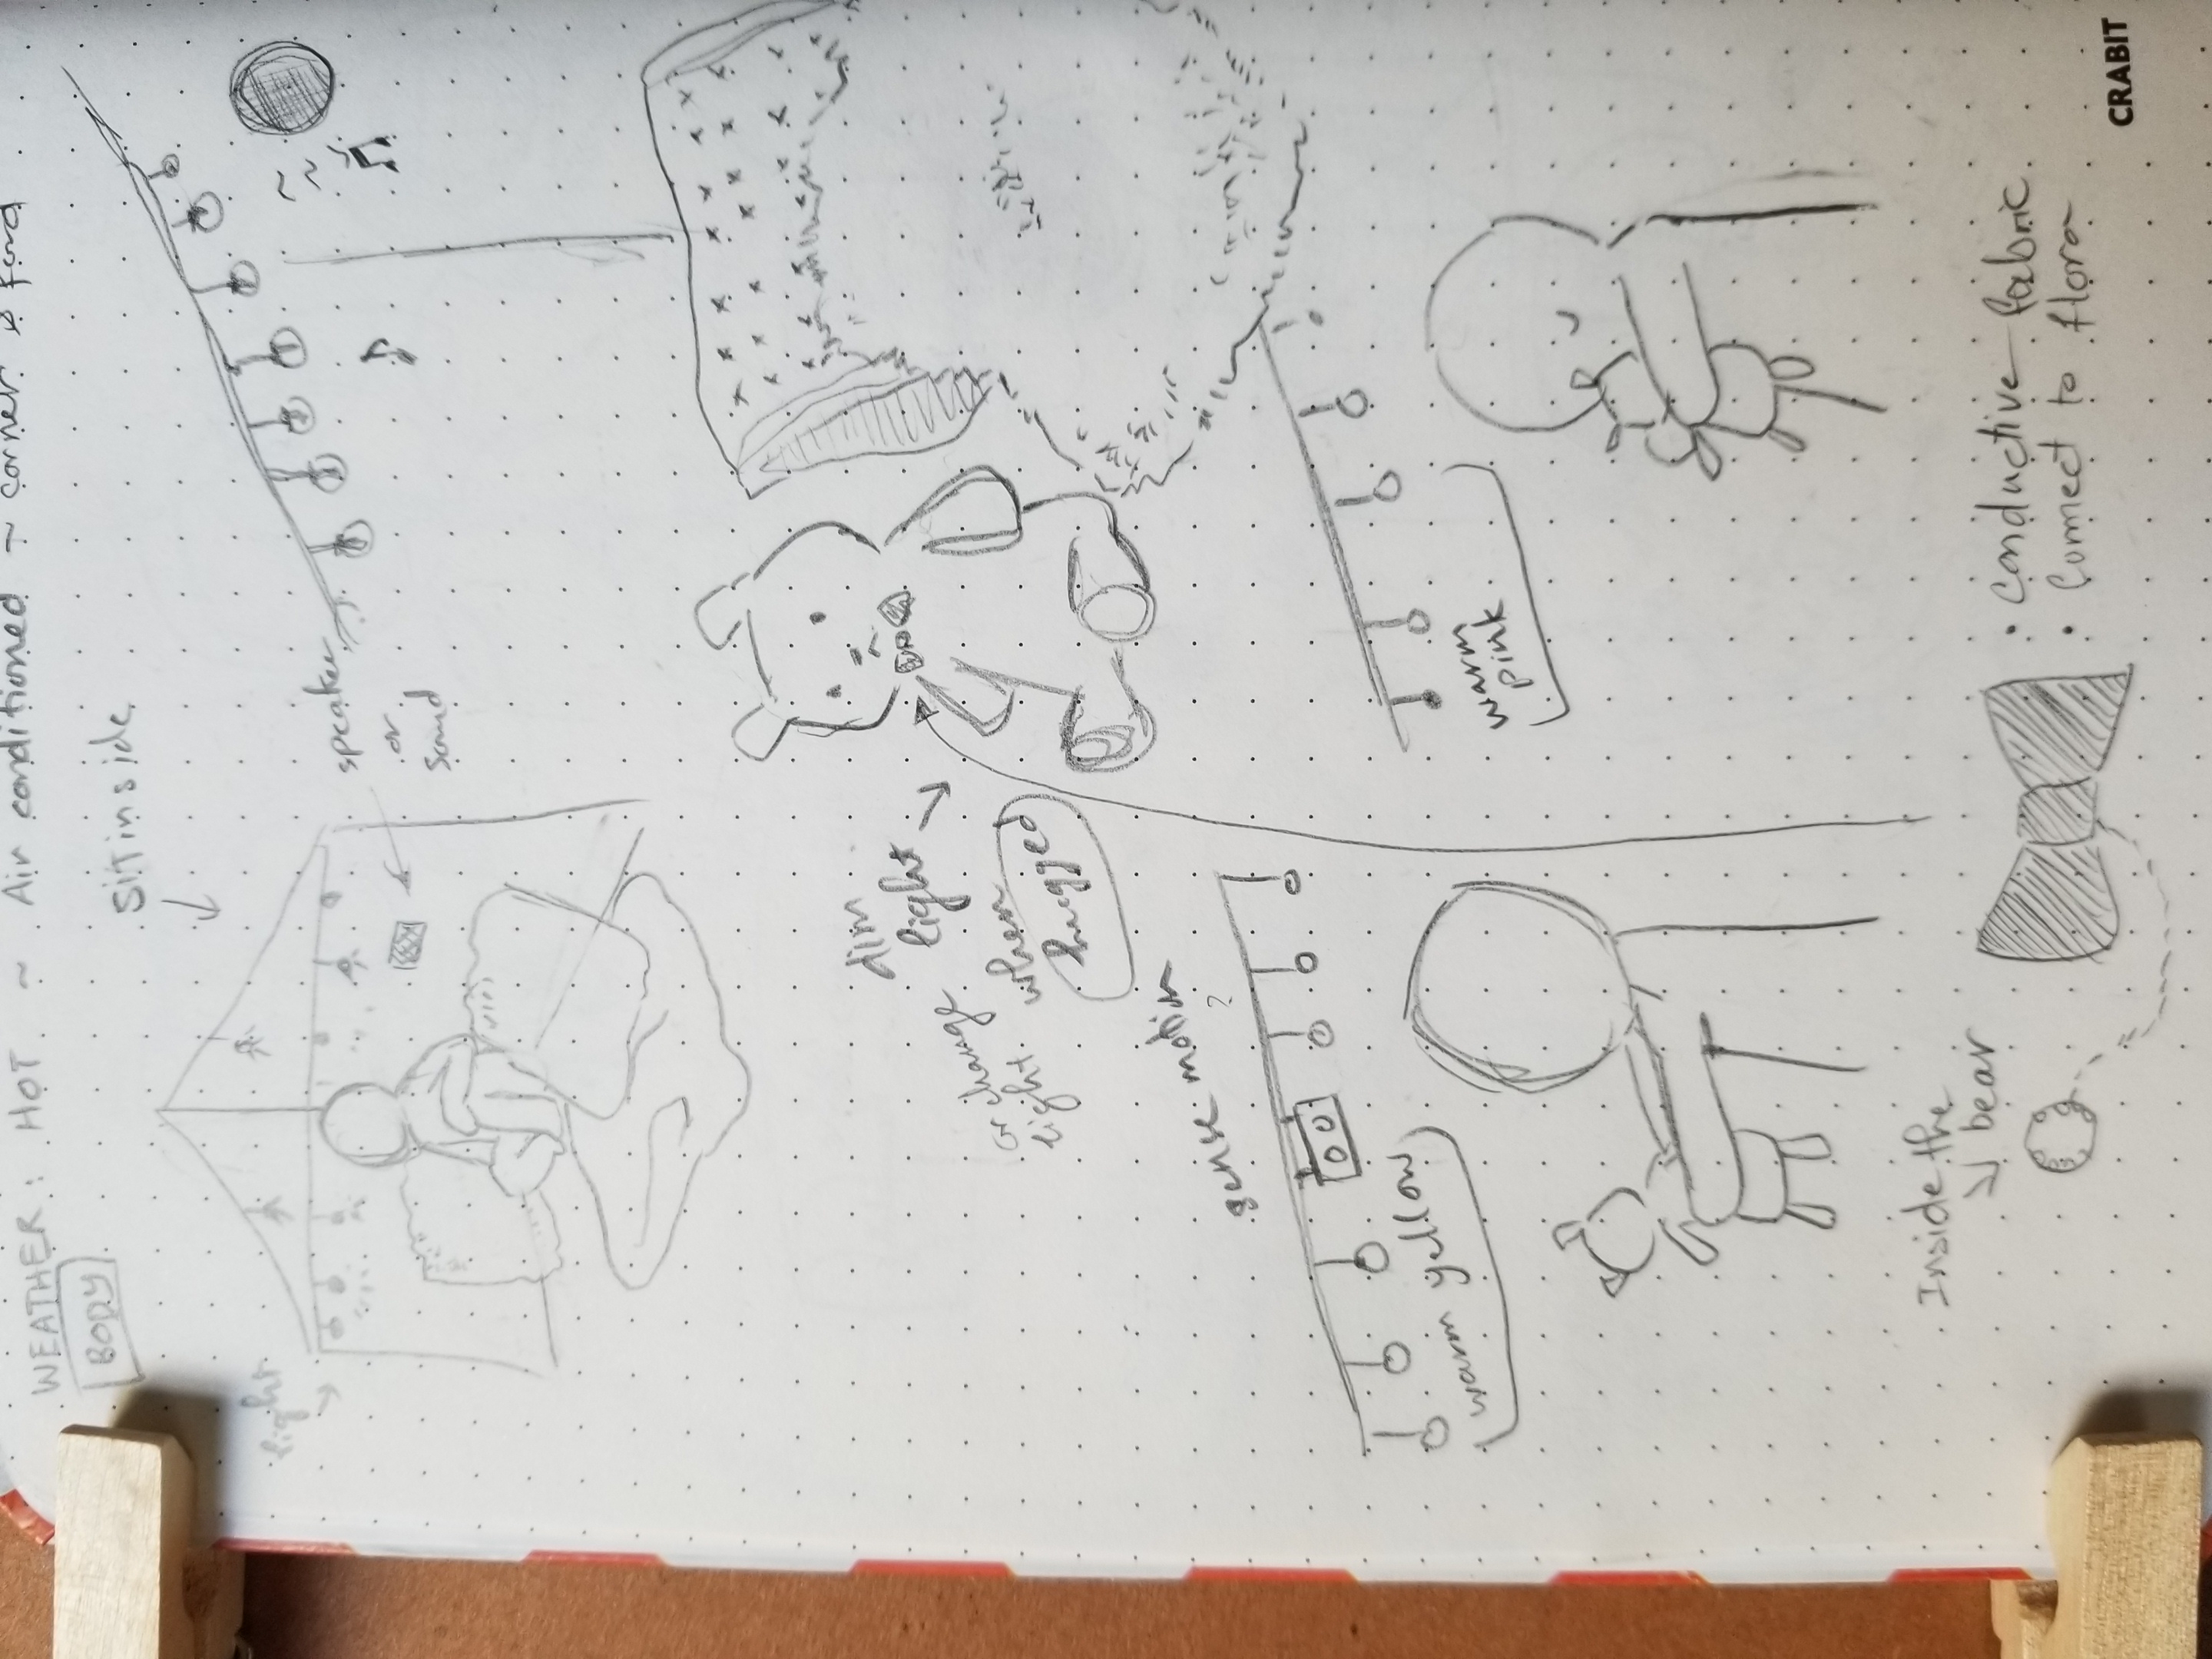 WEATHER: HOT ~ Air conditioned ~ corner
BODY
Sit inside
light
speaker
or
sound
dim
light
or change
light
when
hugged
sense motion
?
warm yellow
warm
pink
Inside the
bear
• conductive fabric
• Connect to flora
CRABIT